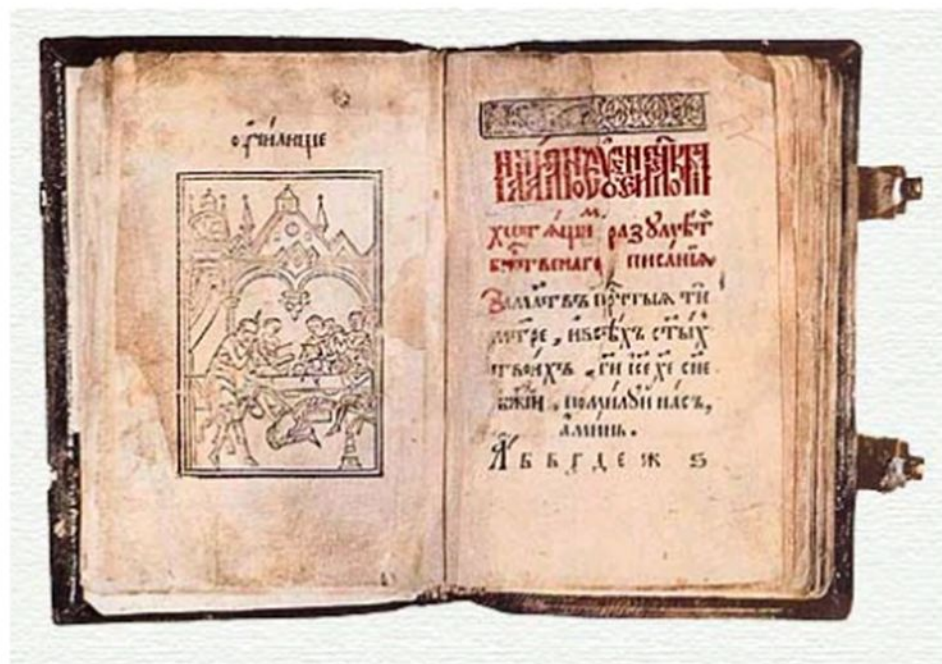 ᲂу҆чи́лище
хотѧ́щимъ разꙋмѣ́ти
бж҃е́ственагѡ писа́нїѧ
За мл҃твъ прⷭ҇тыѧ ти
мт҃ре, и҆ всѣ́хъ ст҃ы́хъ
твои́хъ, гⷭ҇и і҆с҃е хе҃ сн҃е
бж҃їй, поми́лꙋй на́съ,
а҆ми́нь.
А҆ Б В Г Д Е Ж Ѕ